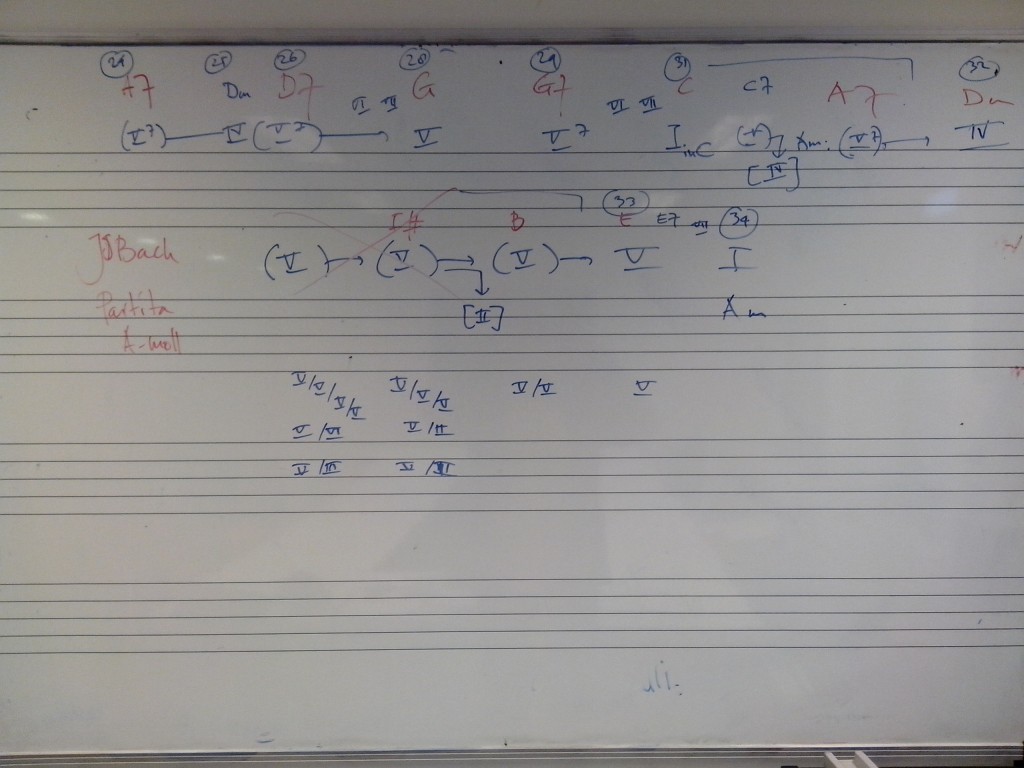 24 25 26 28 29 31 32
A7 Dm D7 G G7 C C7 A7 Dm
(V7) (V7) VI VII V V7 VI VII I in C Am: (V7) IV
[IV]
33
B E E7 VII 34
JS Bach (V) (V) (V) V I
Partita [II] Am
A-moll
V/V/V/V V/V/V V/V V
V/VI V/II
V/III